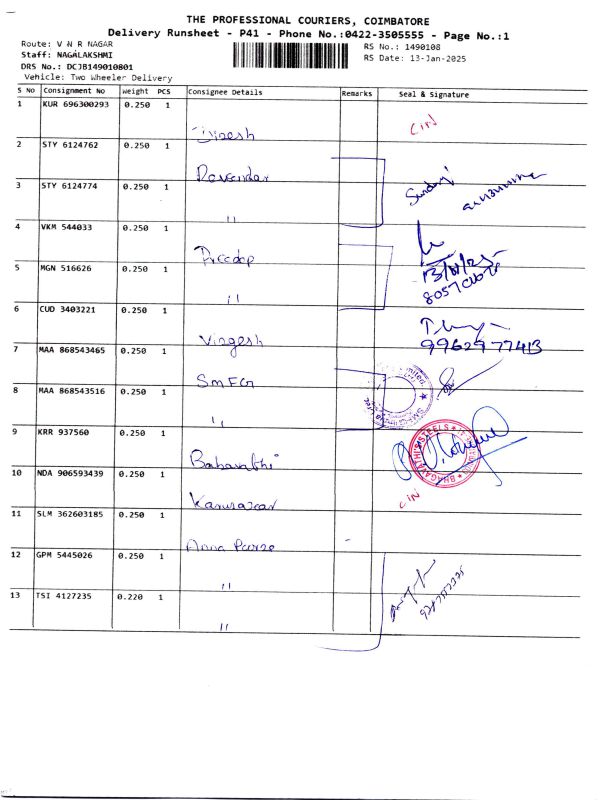 THE PROFESSIONAL COURIERS, COIMBATORE
Delivery Runsheet - P41 - Phone No.:0422-3505555 - Page No.:1
Route: V N R NAGAR
Staff: NAGALAKSHMI
DRS No.: DCJB149010801
Vehicle: Two Wheeler Delivery
RS No.: 1490108
RS Date: 13-Jan-2025
S No Consignment No Weight PCS Consignee Details Remarks Seal & Signature
1 KUR 696300293 0.250 1
2 STY 6124762 0.250 1
3 STY 6124774 0.250 1
"
4 VKM 544033 0.250 1
Preedap
5 MGN 516626 0.250 1
"
6 CUD 3403221 0.250 1
Virgesh
9962977413
7 MAA 868543465 0.250 1
SMFG
8 MAA 868543516 0.250 1
"
9 KRR 937560 0.250 1
BHAGAVATHI'S STEELS
10 NDA 906593439 0.250 1
11 SLM 362603185 0.250 1
12 GPM 5445026 0.250 1
"
13 TSI 4127235 0.220 1
"